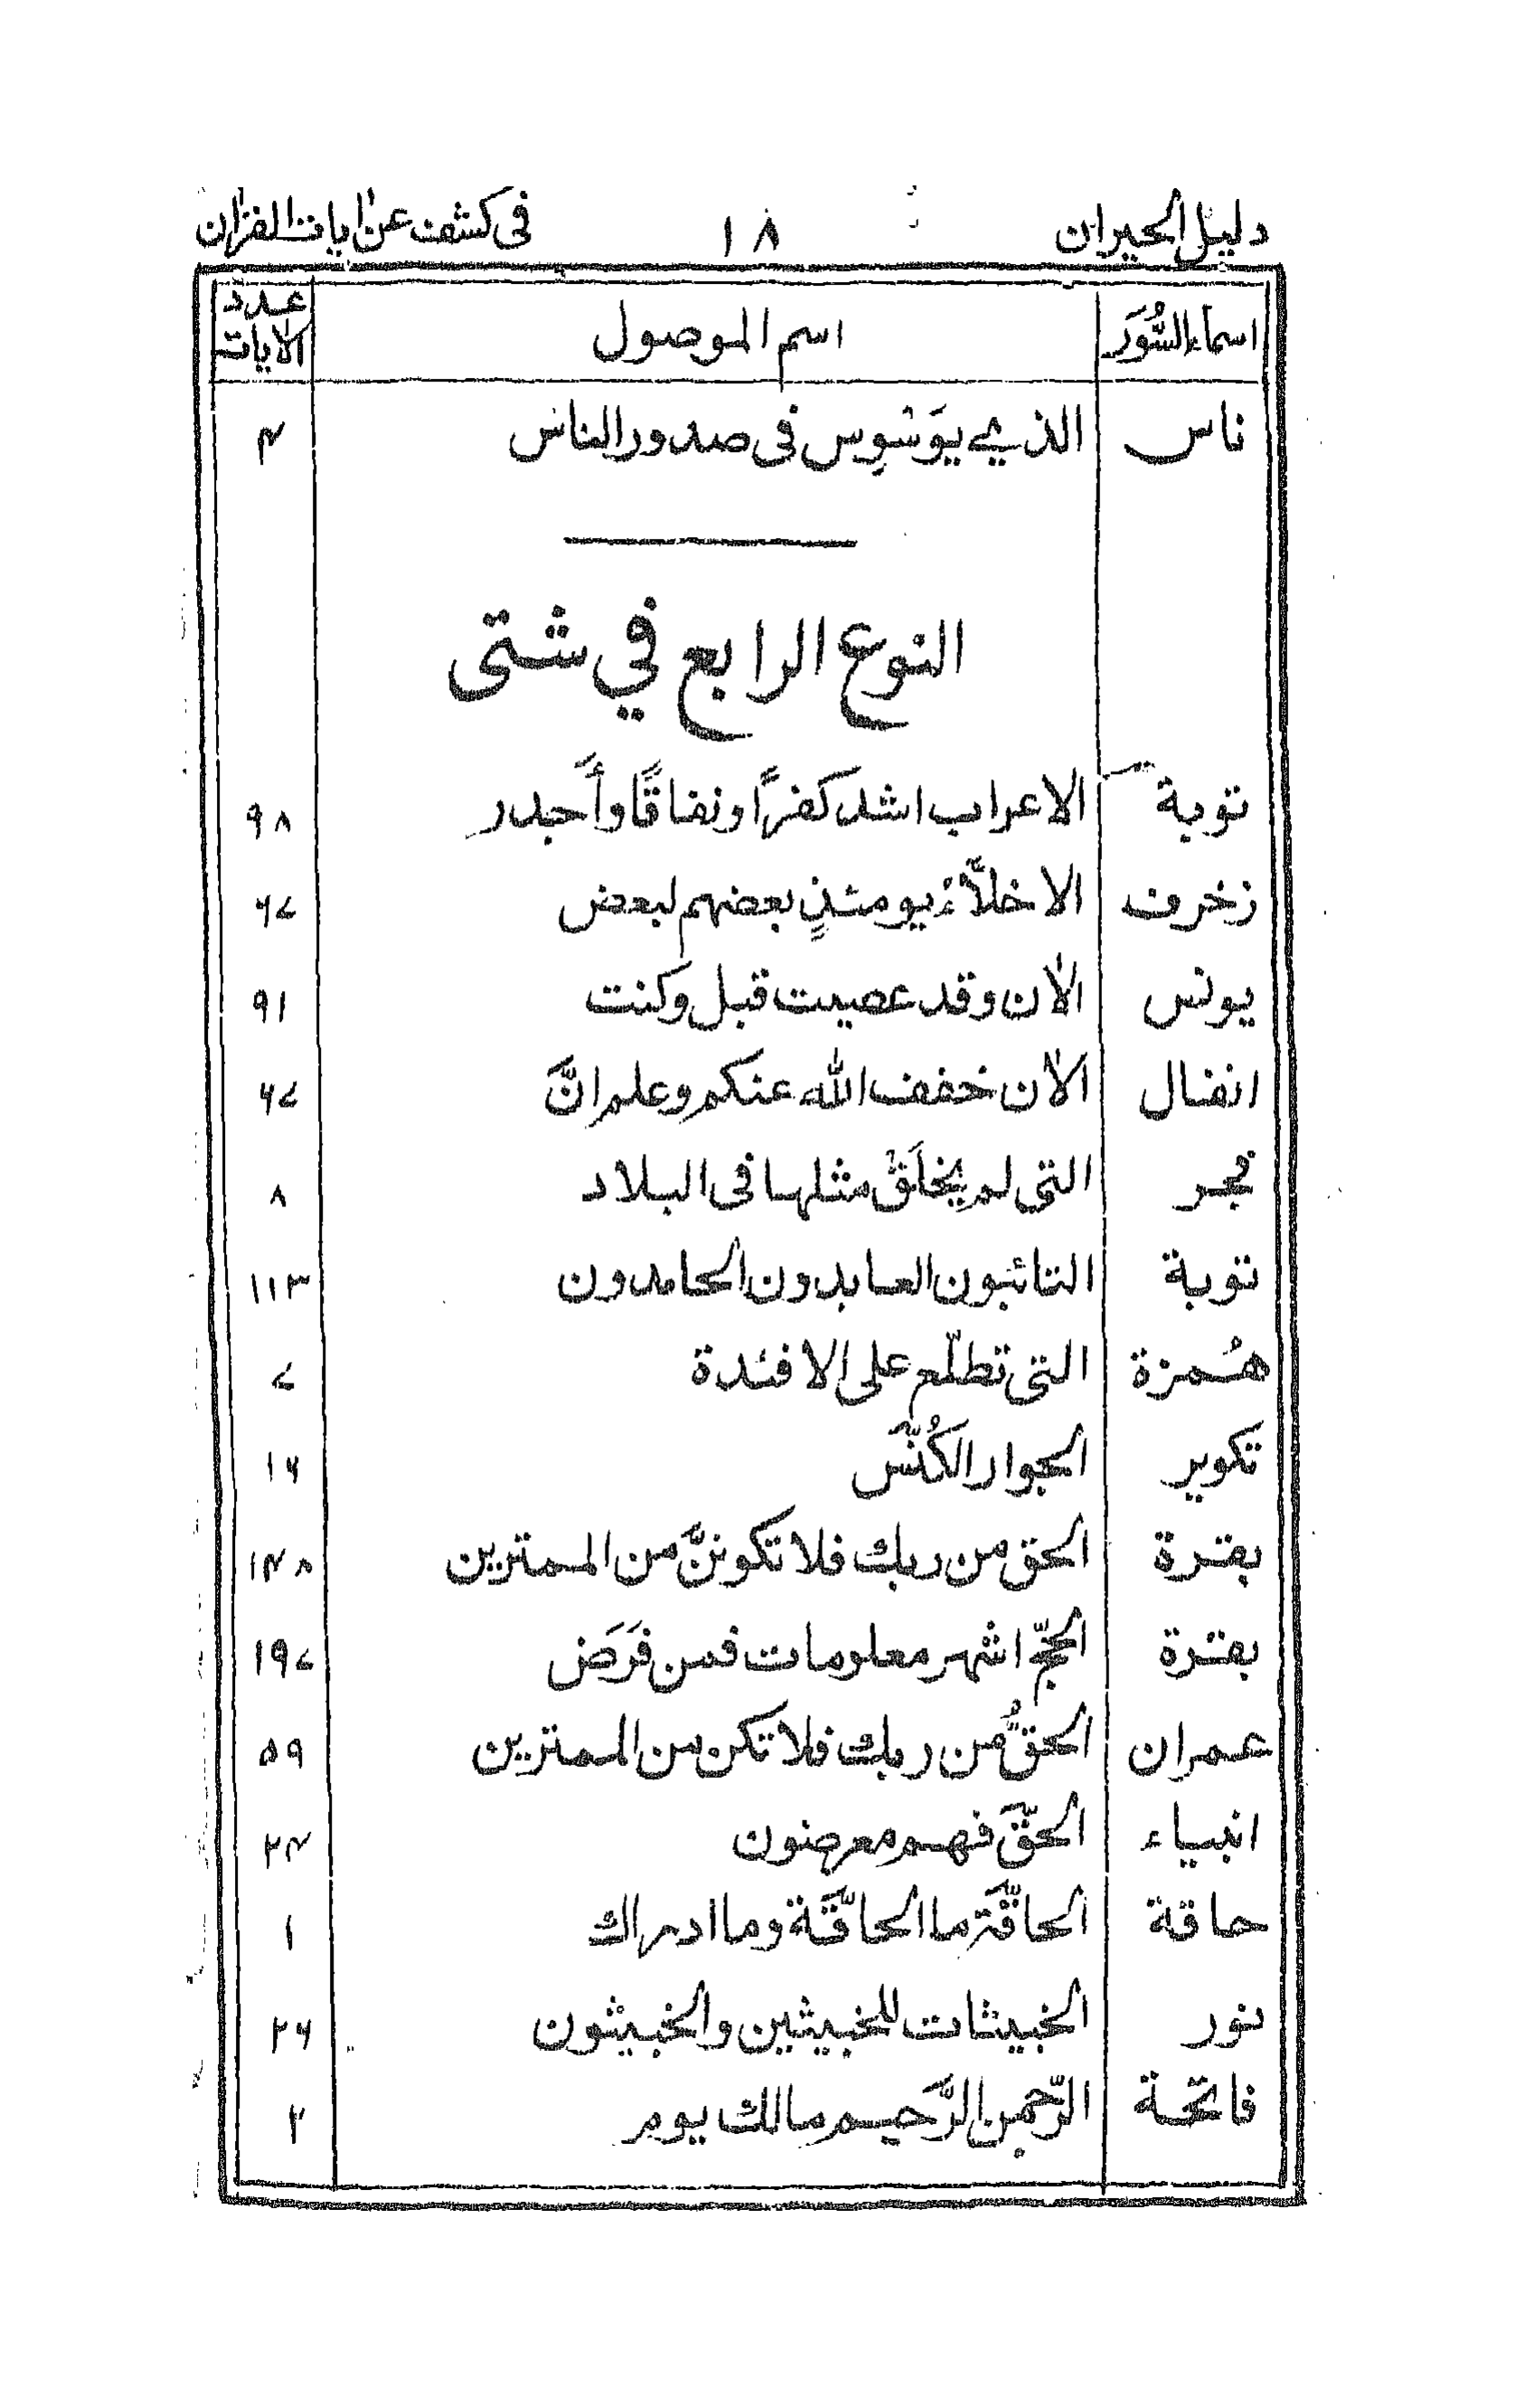 دليل الحيران ١٨ فى كشف عن اٰيات القراٰن
اسماء السُّوَر اسم الموصول عدد الاٰيات
ناس الذي يوَسْوِس فى صدور الناس ۴
النوع الرابع في شتى
توبة الاعراب اشد كفرًا ونفاقًا وأَجدر ٩٨
زخرف الاخلّاءُ يومئذٍ بعضهم لبعض ٦٧
يونس الاٰن وقد عصيت قبل وكنت ٩١
انفال الاٰن خفف الله عنكم وعلم انَّ ٦٧
فجر التى لم يُخلَقْ مثلها فى البلاد ٨
توبة التائبون العابدون الحامدون ١١٣
هُمزة التى تطلّع على الافئدة ٧
تكوير الجوار الكُنَّس ١٦
بقرة الحق من ربك فلا تكوننَّ من الممترين ١۴٨
بقرة الحجّ اشهر معلومات فمن فَرَض ١٩٧
عمران الحقُّ من ربك فلا تكن من الممترين ٥٩
انبياء الحقَّ فهم معرضون ٢۴
حاقة الحاقَّة ما الحاقَّة وما ادراك ١
نور الخبيثات للخبيثين والخبيثون ٢٦
فاتحة الرّحمن الرَّحيم مالك يوم ٢